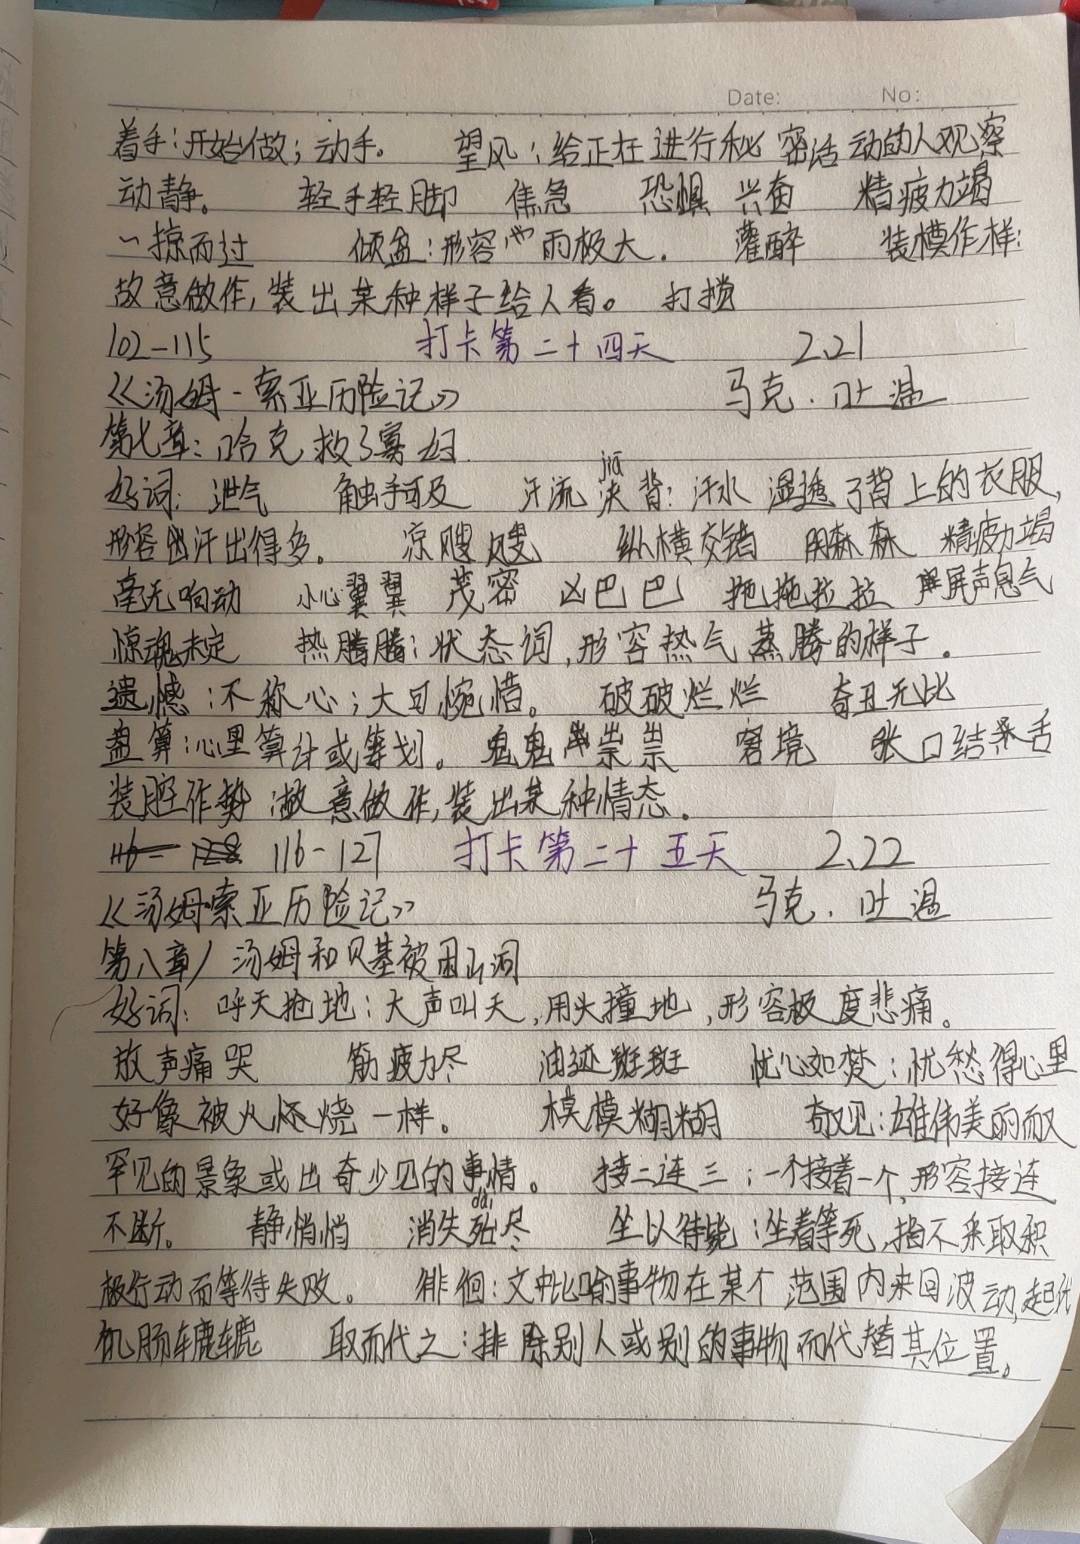 Date: No:
着手:开始做;动手。 望风:给正在进行秘密活动的人观察
动静。 轻手轻脚 焦急 恐惧 兴奋 精疲力竭
一掠而过 倾盆:形容 雨极大。 灌醉 装模作样:
故意做作,装出某种样子给人看。 打搅
102-115 打卡第二十四天 2.21
《汤姆·索亚历险记》 马克.吐温
第七章:哈克救了寡妇
好词: 泄气 触手可及 汗流浃(jiā)背:汗水湿透了背上的衣服,
形容 汗出得多。 凉飕飕 纵横交错 阴森森 精疲力竭
毫无响动 小心翼翼 茂密 凶巴巴 拖拖拉拉 屏声息气
惊魂未定 热腾腾:状态词,形容热气蒸腾的样子。
遗憾:不称心;大可惋惜。 破破烂烂 奇丑无比
盘算:心里算计或筹划。 鬼鬼祟祟 窘境 张口结舌
装腔作势:故意做作,装出某种情态。
116-127 打卡第二十五天 2.22
《汤姆索亚历险记》 马克.吐温
第八章/汤姆和贝基被困山洞
好词: 呼天抢地:大声叫天,用头撞地,形容极度悲痛。
放声痛哭 筋疲力尽 油迹斑斑 忧心如焚:忧愁得心里
好像被火烧一样。 模模糊糊 奇观:雄伟美丽而又
罕见的景象或出奇少见的事情。 接二连三:一个接着一个,形容接连
不断。 静悄悄 消失殆(dài)尽 坐以待毙:坐着等死,指不采取积
极行动而等待失败。 徘徊:文中比喻事物在某个范围内来回波动,起伏
饥肠辘辘 取而代之:排除别人或别的事物而代替其位置。